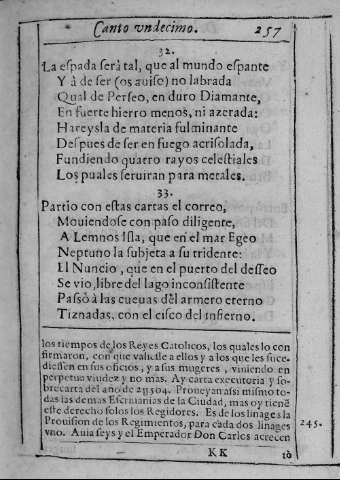 Canto vndecimo. 257
32.
La espada serà tal, que al mundo espante
Y à de ser (os auiso) no labrada
Qual de Perseo, en duro Diamante,
En fuerte hierro menos, ni azerada:
Hareysla de materia fulminante
Despues de ser en fuego acrisolada,
Fundiendo quatro rayos celestiales
Los quales seruiran para metales.
33.
Partio con estas cartas el correo,
Mouiendose con paso diligente,
A Lemnos Isla, que en el mar Egeo
Neptuno la subjeta a su tridente:
El Nuncio, que en el puerto del desseo
Se vio, libre del lago inconsistente
Passò à las cueuas del armero eterno
Tiznadas, con el cisco del infierno.
los tiempos de los Reyes Catolicos, los quales lo con
firmaron, con que valiesse a ellos y a los que les suce-
diessen en sus oficios, y a sus mugeres, viniendo en
perpetua viudez y no mas. Ay carta executoria y so-
brecarta del año de 1504. Proneyan assi mismo to-
das las demas Escriuanias de la Ciudad, mas oy tienẽ
este derecho solos los Regidores. Es de los linages la
Prouision de los Regimientos, para cada dos linages 245.
vno. Auia seys y el Emperador Don Carlos acrecen
KK to